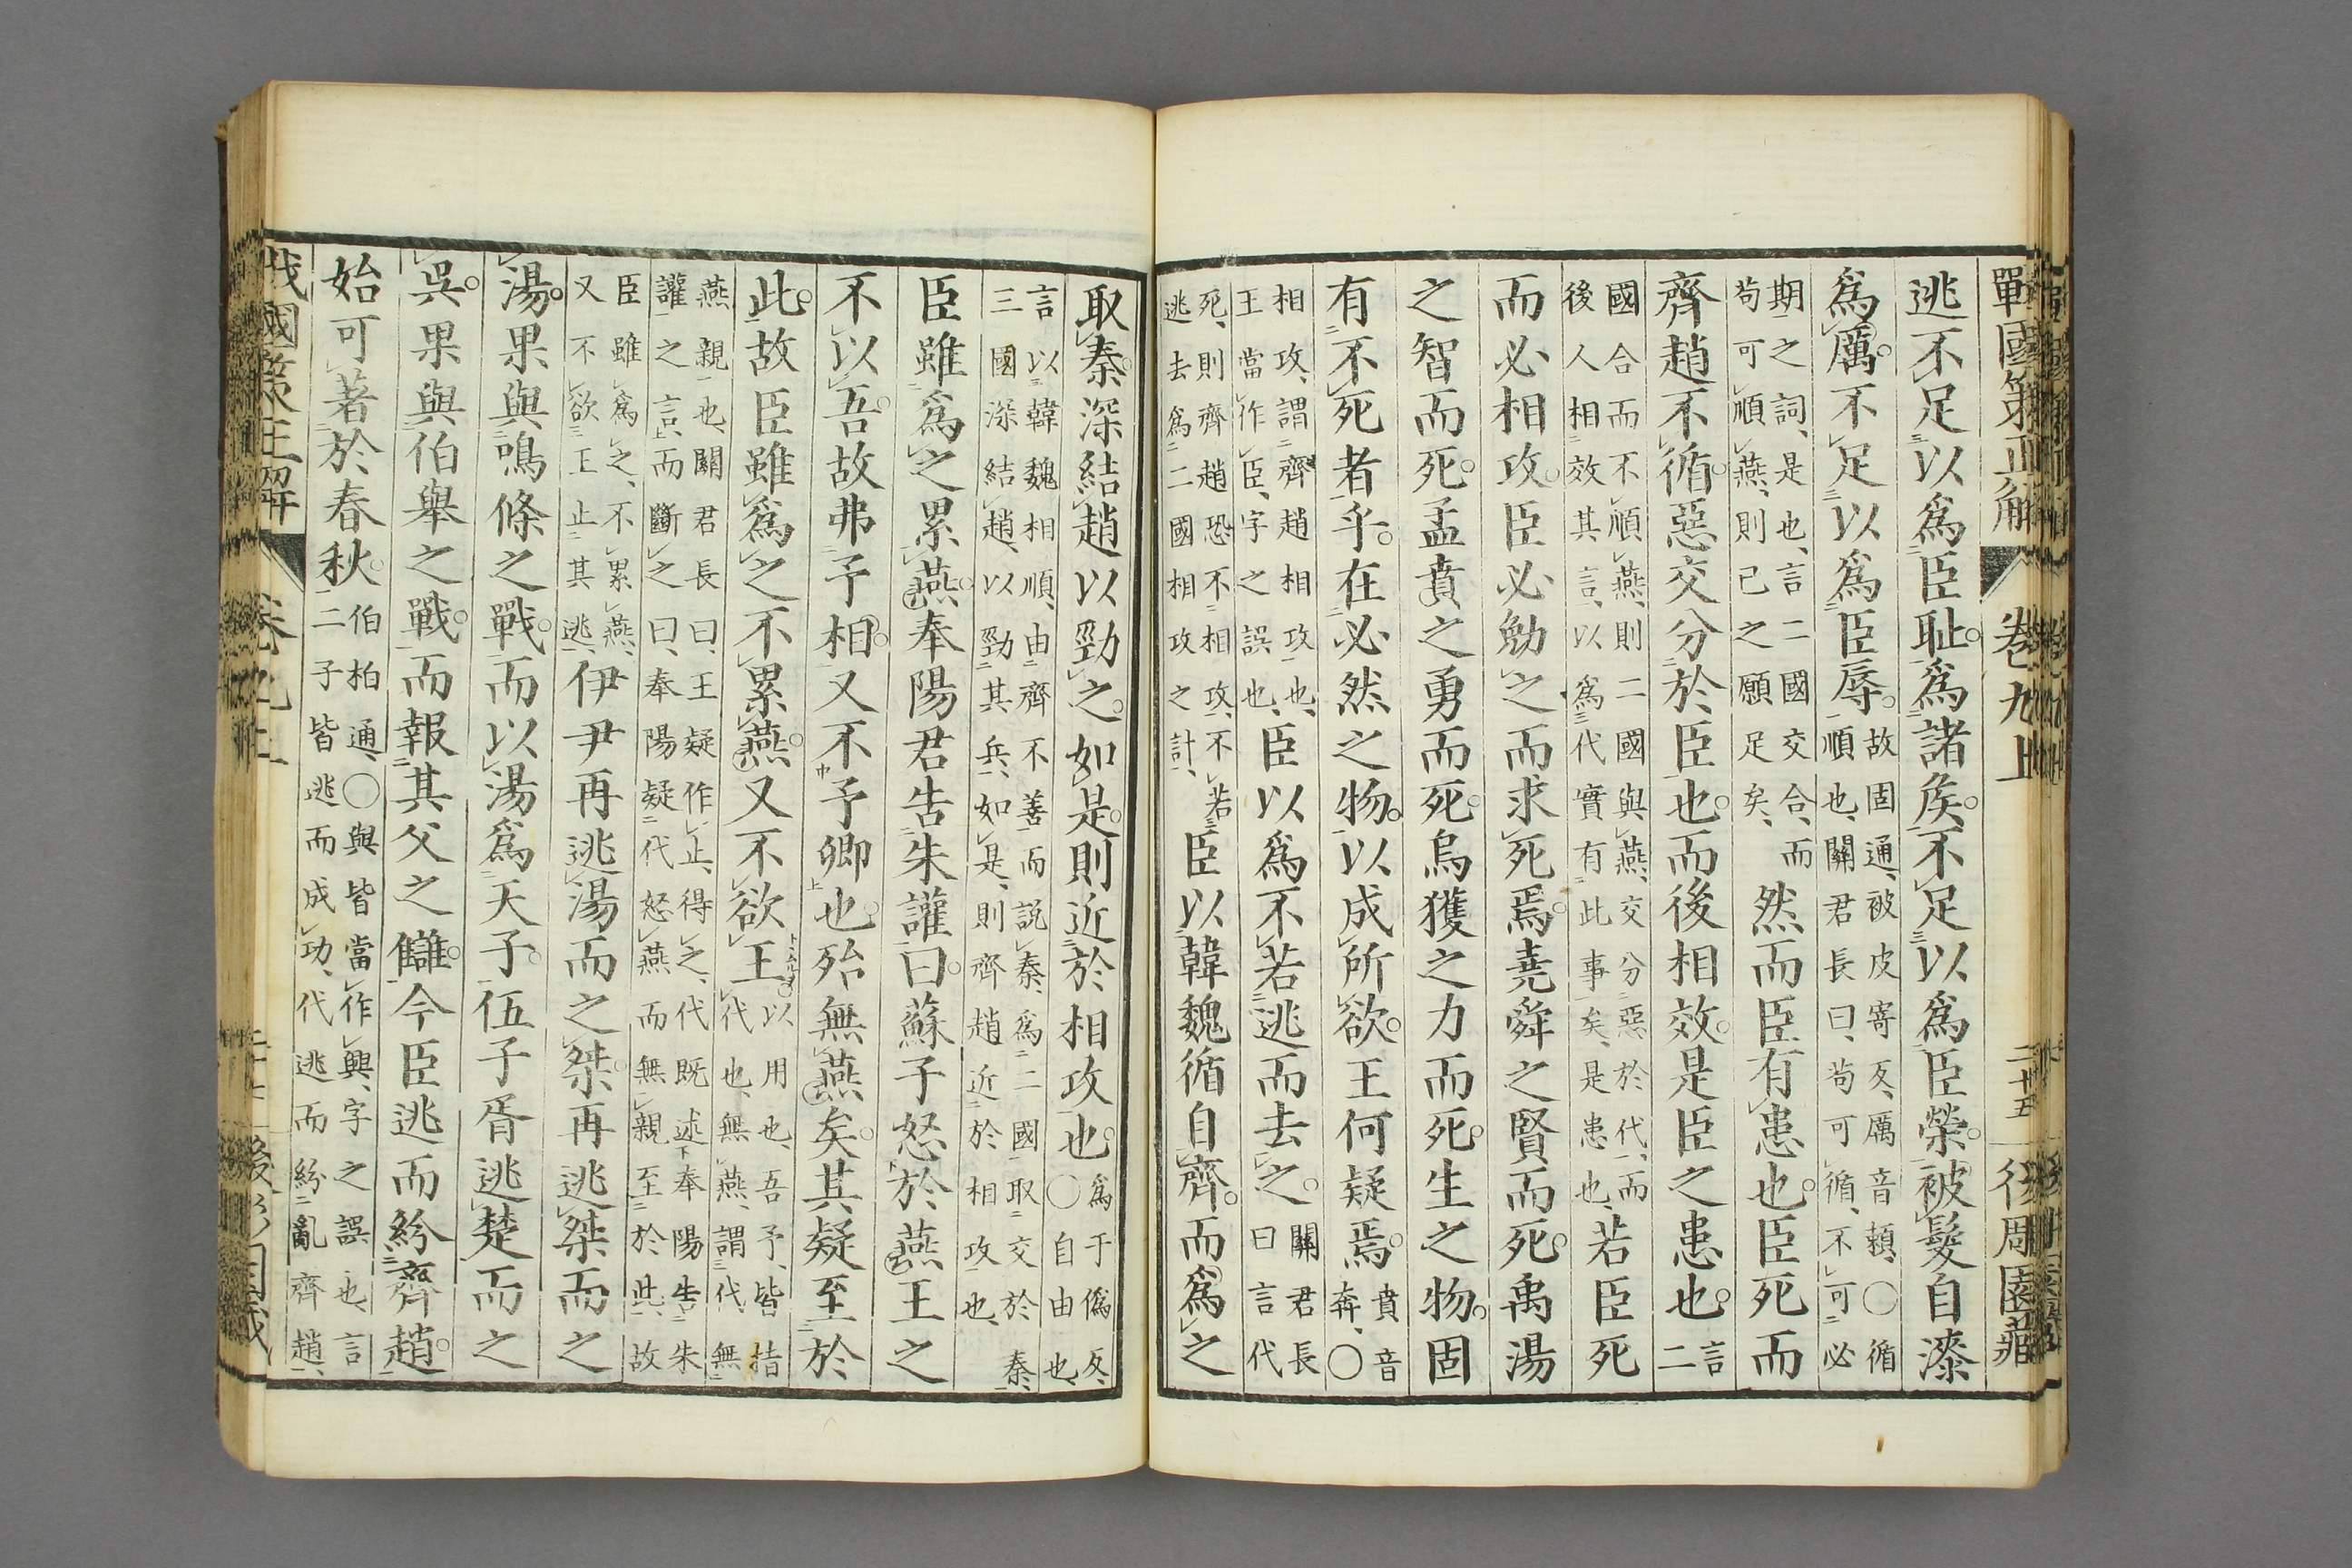 戰國策正解 卷九上 二十五 後周園藏
逃不足以爲臣耻爲諸矦不足以爲臣榮被髮自漆
爲厲不足以爲臣辱故固通被皮寄反厲音頼〇循
順也關君長曰苟可循不可必
期之詞是也言二國交合而
苟可順燕則已之願足矣然而臣有患也臣死而
齊趙不循惡交分於臣也而後相效是臣之患也言
二
國合而不順燕則二國與燕交分惡於代而
後人相效其言以爲代實有此事矣是患也若臣死
而必相攻臣必勉之而求死焉堯舜之賢而死禹湯
之智而死孟賁之勇而死烏獲之力而死生之物固
有不死者乎在必然之物以成所欲王何疑焉賁音
奔〇
相攻謂齊趙相攻也
王當作臣字之誤也臣以爲不若逃而去之關君長
曰言代
死則齊趙恐不相攻不若
逃去爲二國相攻之計臣以韓魏循自齊而爲之
取秦深結趙以勁之如是則近於相攻也爲于僞反
〇自由也
言以韓魏相順由齊不善而説秦爲二國取交於秦
三國深結趙以勁其兵如是則齊趙近於相攻也
臣雖爲之累燕奉陽君告朱讙曰蘇子怒於燕王之
不以吾故弗予相又不予卿也殆無燕矣其疑至於
此故臣雖爲之不累燕又不欲王以用也吾予皆指
代也無燕謂代無
燕親也關君長曰王疑作止得之代既述奉陽告朱
讙之言而斷之曰奉陽疑代怒燕而無親至於此故
臣雖爲之不累燕
又不欲王止其逃伊尹再逃湯而之桀再逃桀而之
湯果與鳴條之戰而以湯爲天子伍子胥逃楚而之
吳果與伯舉之戰而報其父之讎今臣逃而紛齊趙
始可著於春秋伯柏通〇與皆當作興字之誤也言
二子皆逃而成功代逃而紛亂齊趙